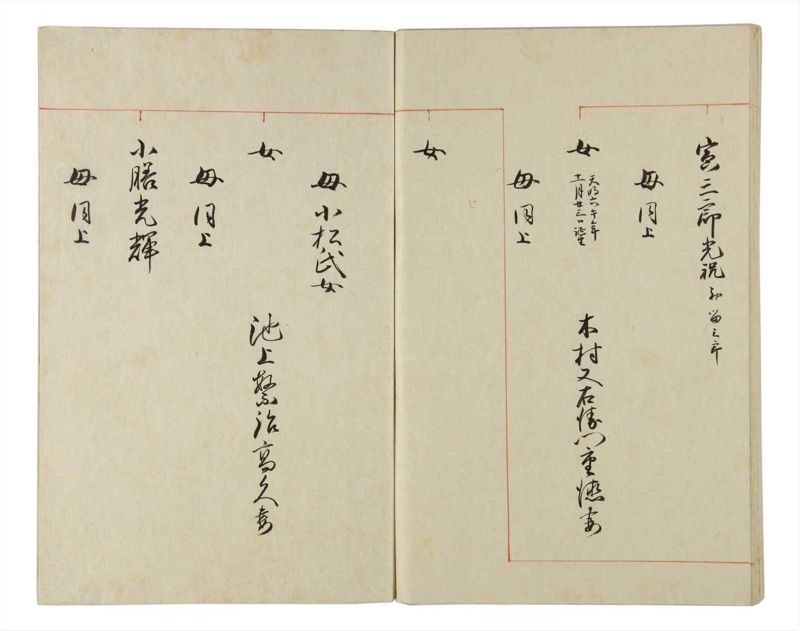 寅三郎光祝 初留之亮
母同上
女 天明六午年 木村又右衛門重懋妻
十一月廿三日誕生
母同上
女
母小松氏女
女 池上繁治高久妻
母同上
小膳光輝
母同上